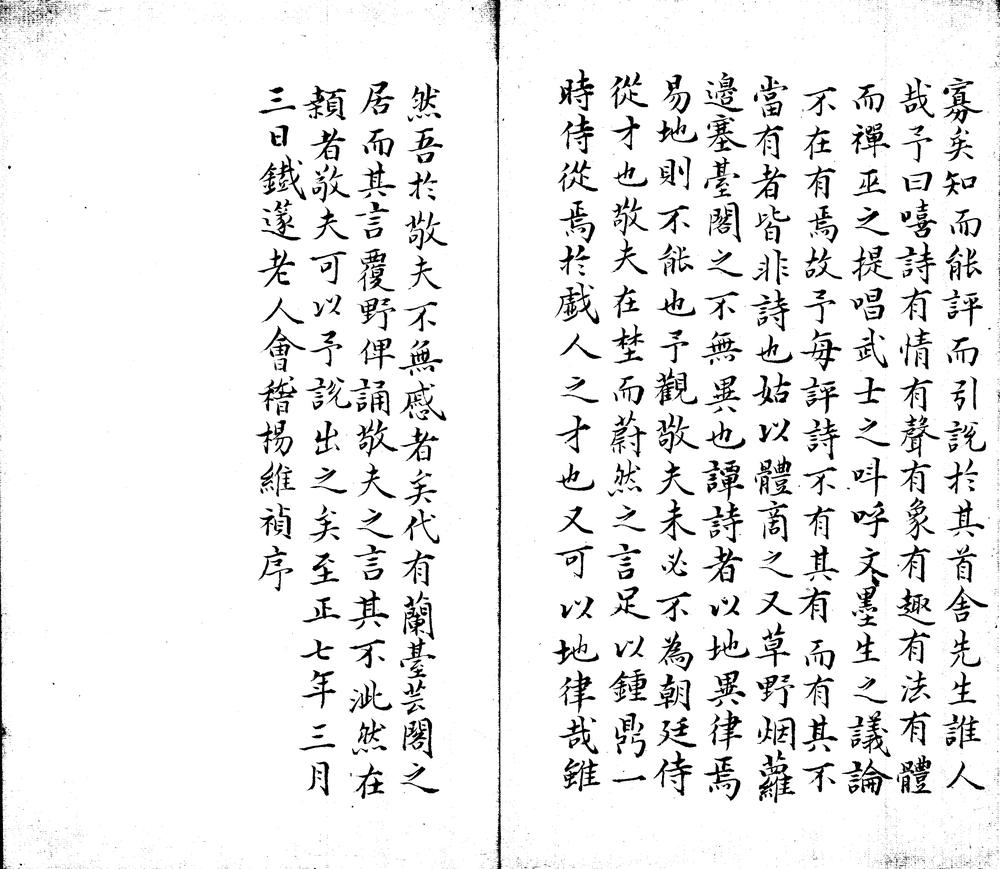 寡矣知而能評而引說於其首舎先生誰人
哉予曰嘻詩有情有聲有象有趣有法有體
而禪巫之提唱武士之呌呼文墨生之議論
不在有焉故予每評詩不有其有而有其不
當有者皆非詩也姑以體啇之又草野烟蘿
邉塞臺閣之不無異也譚詩者以地異律焉
易地則不能也予觀敬夫未必不為朝廷侍
從才也敬夫在埜而蔚然之言足以鍾鼎一
時侍從焉於戱人之才也又可以地律哉雖
然吾於敬夫不無感者矣代有蘭臺芸閣之
居而其言覆野俾誦敬夫之言其不泚然在
顙者敬夫可以予說出之矣至正七年三月
三日鐵篴老人會稽楊維禎序